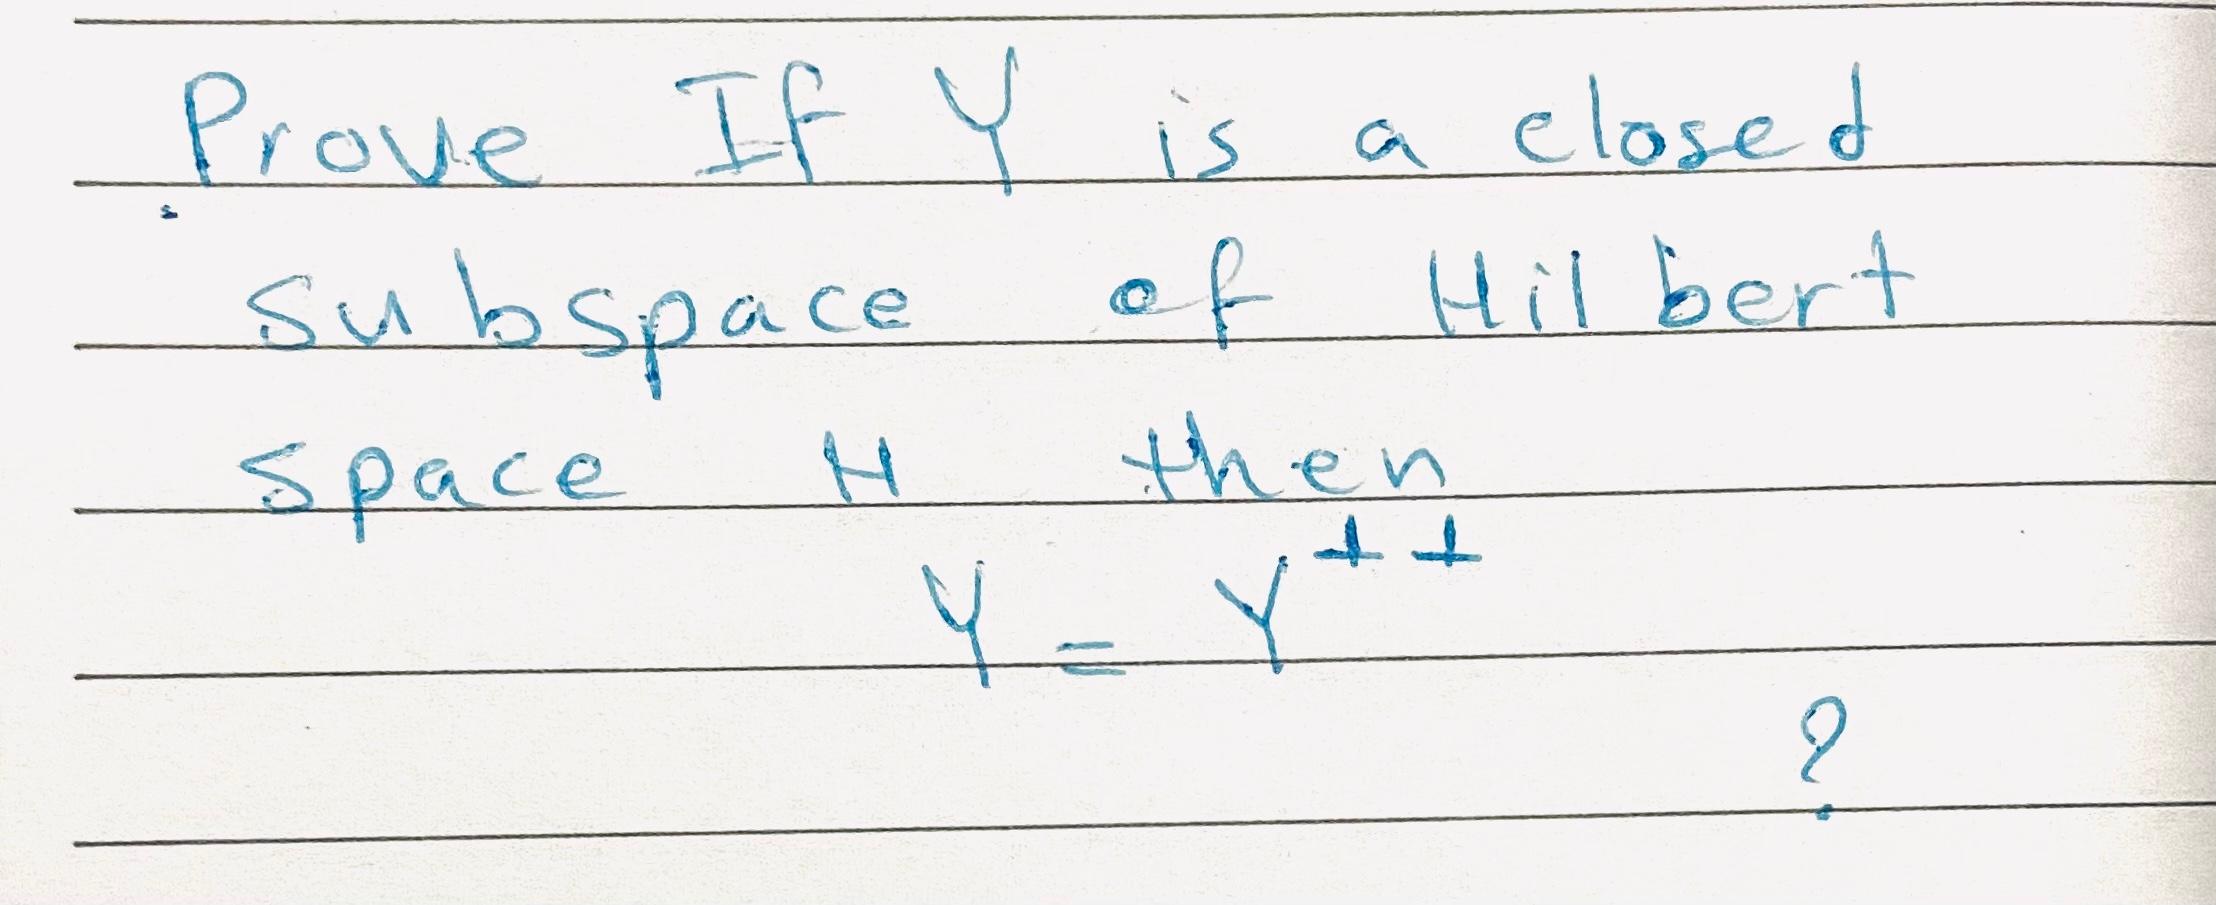 Prove If Y is a closed
subspace of Hilbert
space H then
Y = Y⊥⊥
?